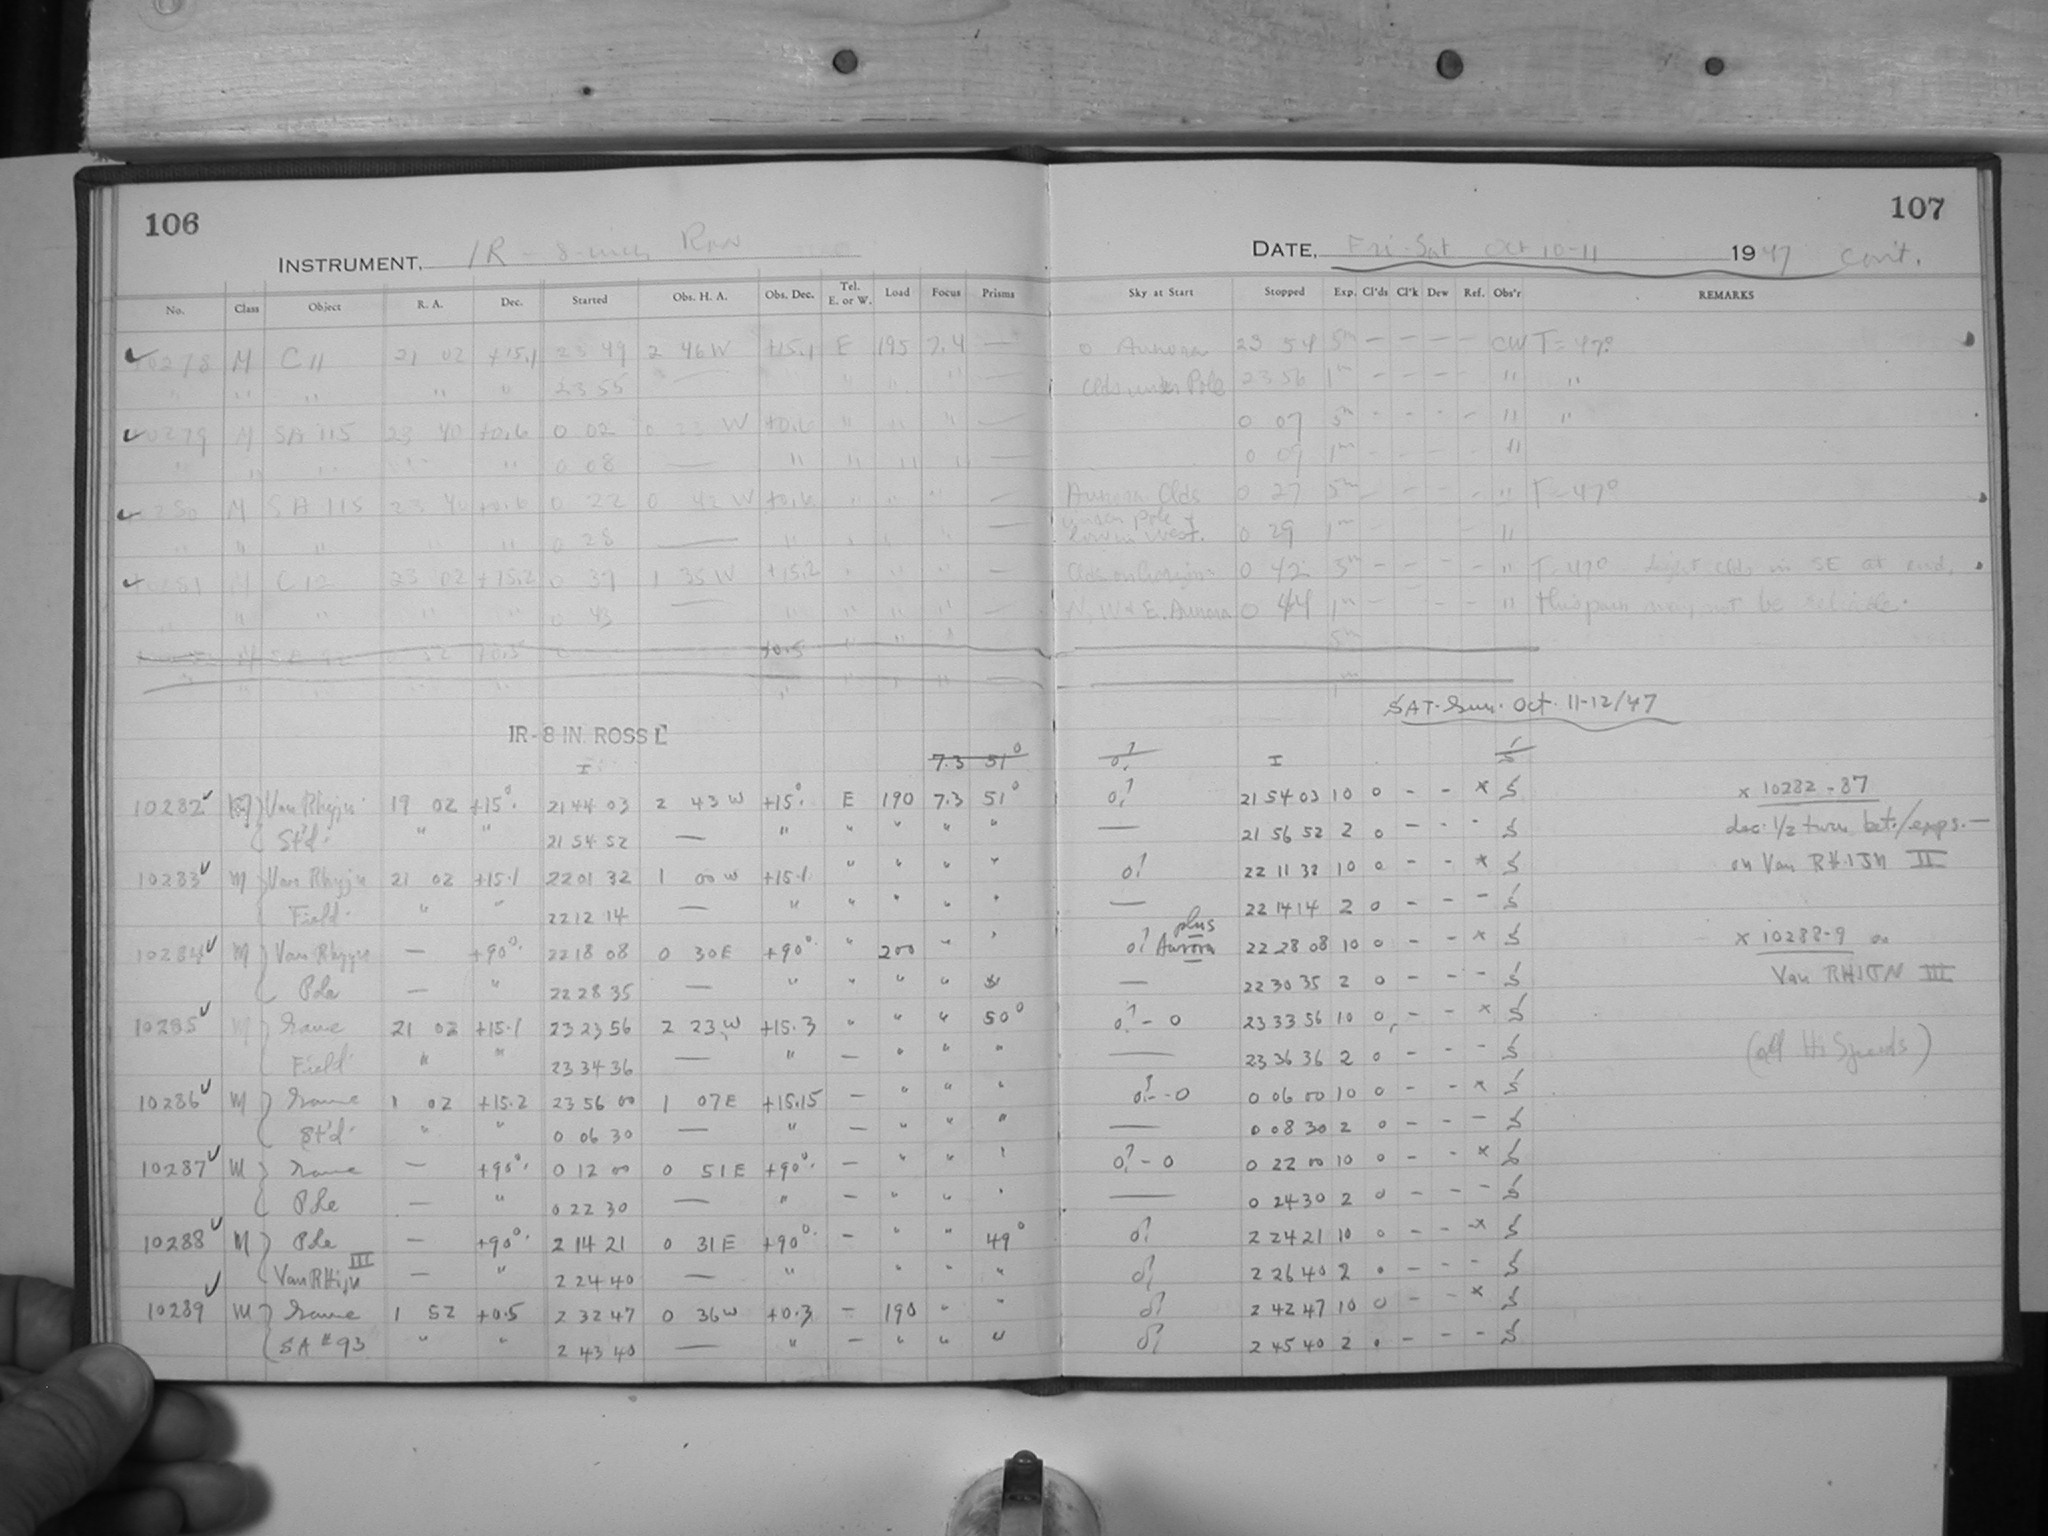 106
107
INSTRUMENT, IR - 8-inch Ross
DATE, Fri-Sat Oct 10-11 1947 Con't.
No. Class Object R. A. Dec. Started Obs. H. A. Obs. Dec. Tel. E. or W. Load Focus Prisms Sky at Start Stopped Exp. Cl'ds Cl'k Dew Ref. Obs'r REMARKS
10278 M C 11 21 02 +15.1 23 49 2 46 W +15.1 E 195 7.4 — 0 Aurora 23 54 5m - - - - CW T = 47°
" " " " " 23 55 — " " " — Clds under Pole 23 56 1m - - - - " "
10279 M SA 115 23 40 +0.6 0 02 0 23 W +0.6 " " " — 0 07 5m - - - - " "
" " " " " 0 08 — " " " " — 0 09 1m - - - - "
M SA 115 23 40 +0.6 0 22 0 42 W +0.6 " " " — Aurora Clds 0 27 5m - - - - " T = 47°
" " " " " 0 28 — " " " " — under pole & low in West. 0 29 1m - - - - "
M C 12 23 02 +15.2 0 37 1 35 W +15.2 " " " — Clds on horizon 0 42 5m - - - - " T = 47° - Light clds in SE at end,
" " " " " 0 43 — " " " " — N, W & E. Aurora 0 44 1m - - - - " this may not be reliable.
M SA 92 0 52 +0.5 0 +0.5 " " " 5m
" " " " " " " " " — 1m
SAT-Sun. Oct. 11-12/47
IR-8 IN. ROSS L
I 7.3 51° 0? I S
10282 Van Rhijn 19 02 +15°. 21 44 03 2 43 W +15°. E 190 7.3 51° 0? 21 54 03 10 0 - - x S x 10282 - 87
St'd. " " 21 54 52 — " " " " " — 21 56 52 2 0 - - - S dec. 1/2 turn bet./exps. —
10283 M Van Rhijn 21 02 +15.1 22 01 32 1 00 W +15.1 " " " " 0? 22 11 32 10 0 - - x S on Van RHIJN II
Field. " " 22 12 14 — " " " " " — 22 14 14 2 0 - - - S
10284 M Van Rhijn — +90°. 22 18 08 0 30 E +90°. " 200 " " 0? plus Aurora 22 28 08 10 0 - - x S x 10288-9 on
Pole — " 22 28 35 — " " " " " — 22 30 35 2 0 - - - S Van RHIJN III
10285 M Same 21 02 +15.1 23 23 56 2 23 W +15.3 " " " 50° 0? - 0 23 33 56 10 0 - - x S
Field " " 23 34 36 — " — " " " — 23 36 36 2 0 - - - S (all Hi Speeds)
10286 M Same 1 02 +15.2 23 56 00 1 07 E +15.15 — " " " 0? - 0 0 06 00 10 0 - - x S
St'd. " " 0 06 30 — " — " " " — 0 08 30 2 0 - - - S
10287 M Same — +90°. 0 12 00 0 51 E +90°. — " " " 0? - 0 0 22 00 10 0 - - x S
Pole — " 0 22 30 — " — " " " — 0 24 30 2 0 - - - S
10288 M Pole — +90°. 2 14 21 0 31 E +90°. — " " 49° 0? 2 24 21 10 0 - - x S
Van RHijn III — " 2 24 40 — " " " " 0? 2 26 40 2 0 - - - S
10289 M Same 1 52 +0.5 2 32 47 0 36 W +0.3 — 190 " " 0? 2 42 47 10 0 - - x S
SA #93 " " 2 43 40 — " — " " " 0? 2 45 40 2 0 - - - S